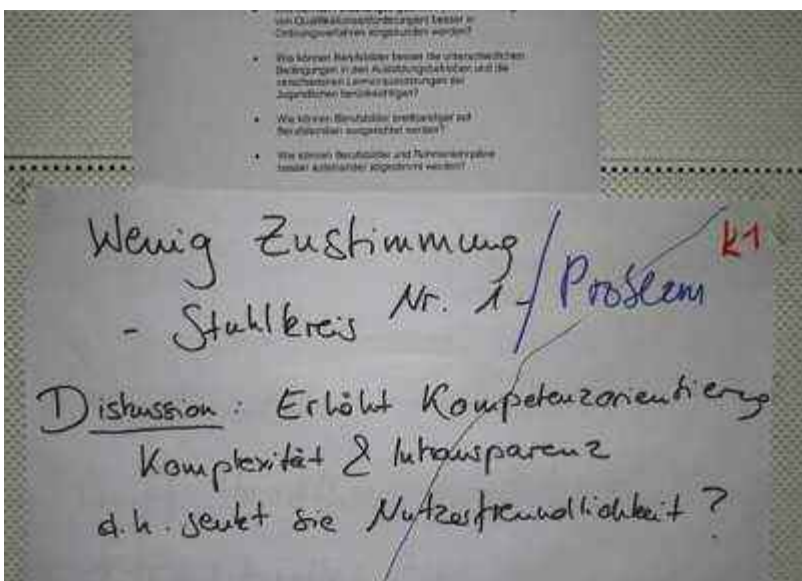 von Qualifikationsanforderungen) besser in
Ordnungsverfahren eingebunden werden?
• Wie können Berufsbilder besser die unterschiedlichen
Bedingungen in den Ausbildungsbetrieben und die
verschiedenen Lernvoraussetzungen der
Jugendlichen berücksichtigen?
• Wie können Berufsbilder
ausgerichtet werden?
• Wie können Berufsbilder und Rahmenlehrpläne
besser aufeinander abgestimmt werden?
k1
Wenig Zustimmung / Problem
- Stuhlkreis Nr. 1 -
Diskussion: Erhöht Kompetenzorientierung
Komplexität & Intransparenz
d.h. senkt sie Nutzerfreundlichkeit?